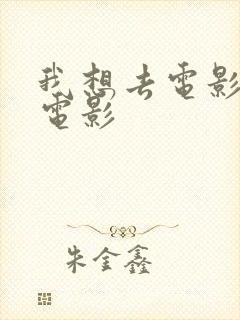 我想去電影
電影
朱金鑫